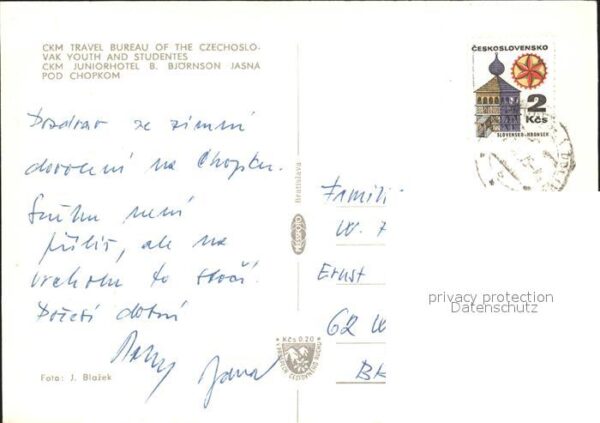 CKM TRAVEL BUREAU OF THE CZECHOSLO-
VAK YOUTH AND STUDENTES
CKM JUNIORHOTEL B. BJÖRNSON JASNA
POD CHOPKOM
Pozdrav ze zimní
dovolené na Chopku.
Sněhu není
příliš, ale na
vrcholu to stačí.
Počasí dobré
Jana
Foto: J. Blažek
Bratislava
PRESSFOTO
Kčs 0.20
ČESKOSLOVENSKO
2
Kčs
SLOVENSKO-HRONSEK
Famili
W.
Ernst
62 W
BK
privacy protection
Datenschutz